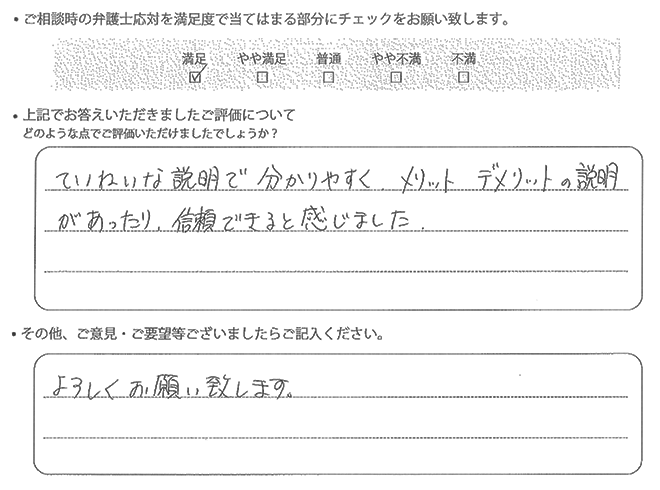 ・ご相談時の弁護士応対を満足度で当てはまる部分にチェックをお願い致します。
満足 やや満足 普通 やや不満 不満
☑ □ □ □ □
・上記でお答えいただきましたご評価について
どのような点でご評価いただけましたでしょうか？
ていねいな説明で分かりやすく、メリット デメリットの説明
があったり、信頼できると感じました.
・その他、ご意見・ご要望等ございましたらご記入ください。
よろしくお願い致します。